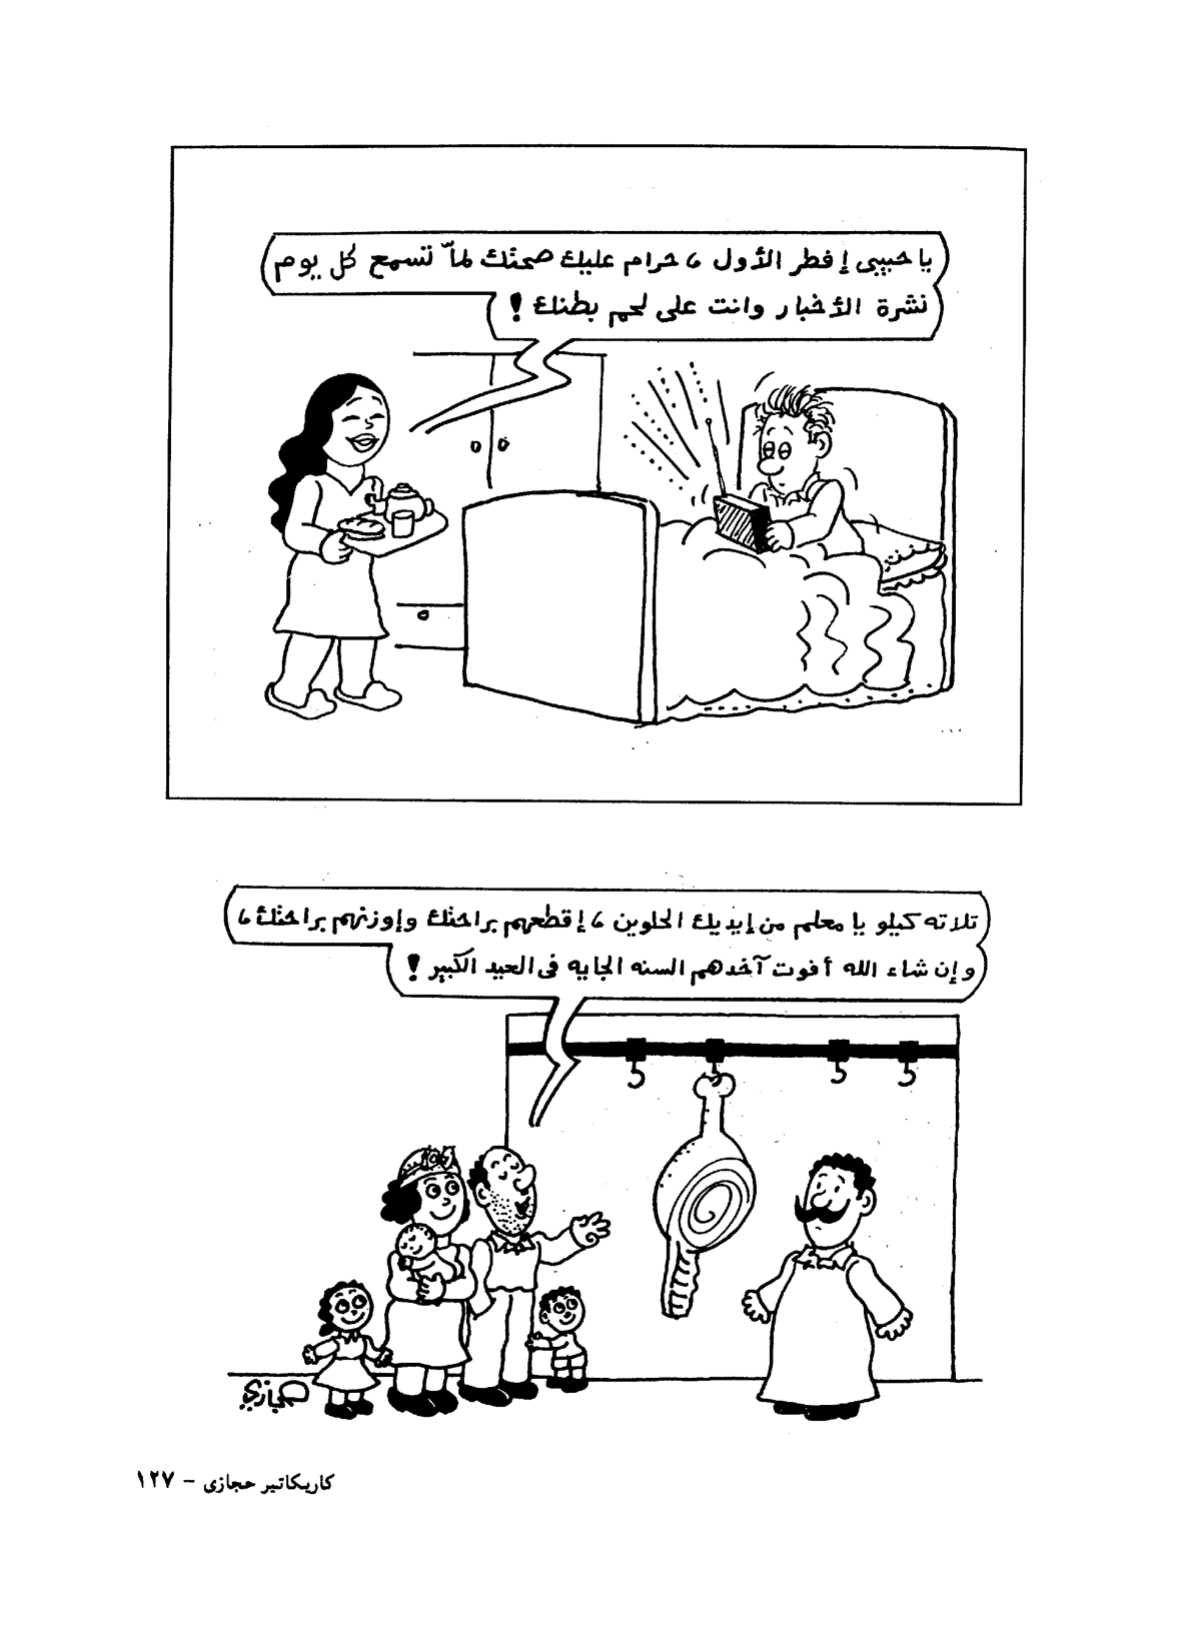 يا حبيبى إفطر الأول ، حرام عليك صحتك لمّا تسمع كل يوم
نشرة الأخبار وانت على لحم بطنك !
تلاته كيلو يا معلم من إيديك الحلوين ، إقطعهم براحتك وإوزنهم براحتك ،
وإن شاء الله أفوت آخدهم السنه الجايه فى العيد الكبير !
حجازي
كاريكاتير حجازى - ١٢٧